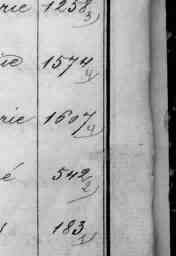 rie 1258
3)
ie 1574
4)
rie 1607
4)
é 542
2)
183
1)